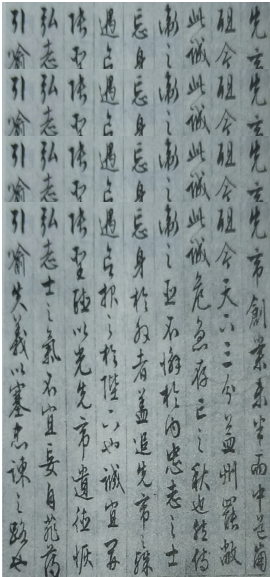 先先先先帝創業未半而中道崩
殂今殂今殂今殂今天下三分益州罷敝
此誠此誠此誠此誠危急存亡之秋也然侍
衛之衛之衛之衛之臣不懈於內忠志之士
忘身忘身忘身忘身於外者蓋追先帝之殊
遇欲遇遇遇欲報之於陛下也誠宜開
張張張張聖聽以光先帝遺德恢
弘志弘志弘志弘志士之氣不宜妄自菲薄
引喻引喻引喻引喻失義以塞忠諫之路也